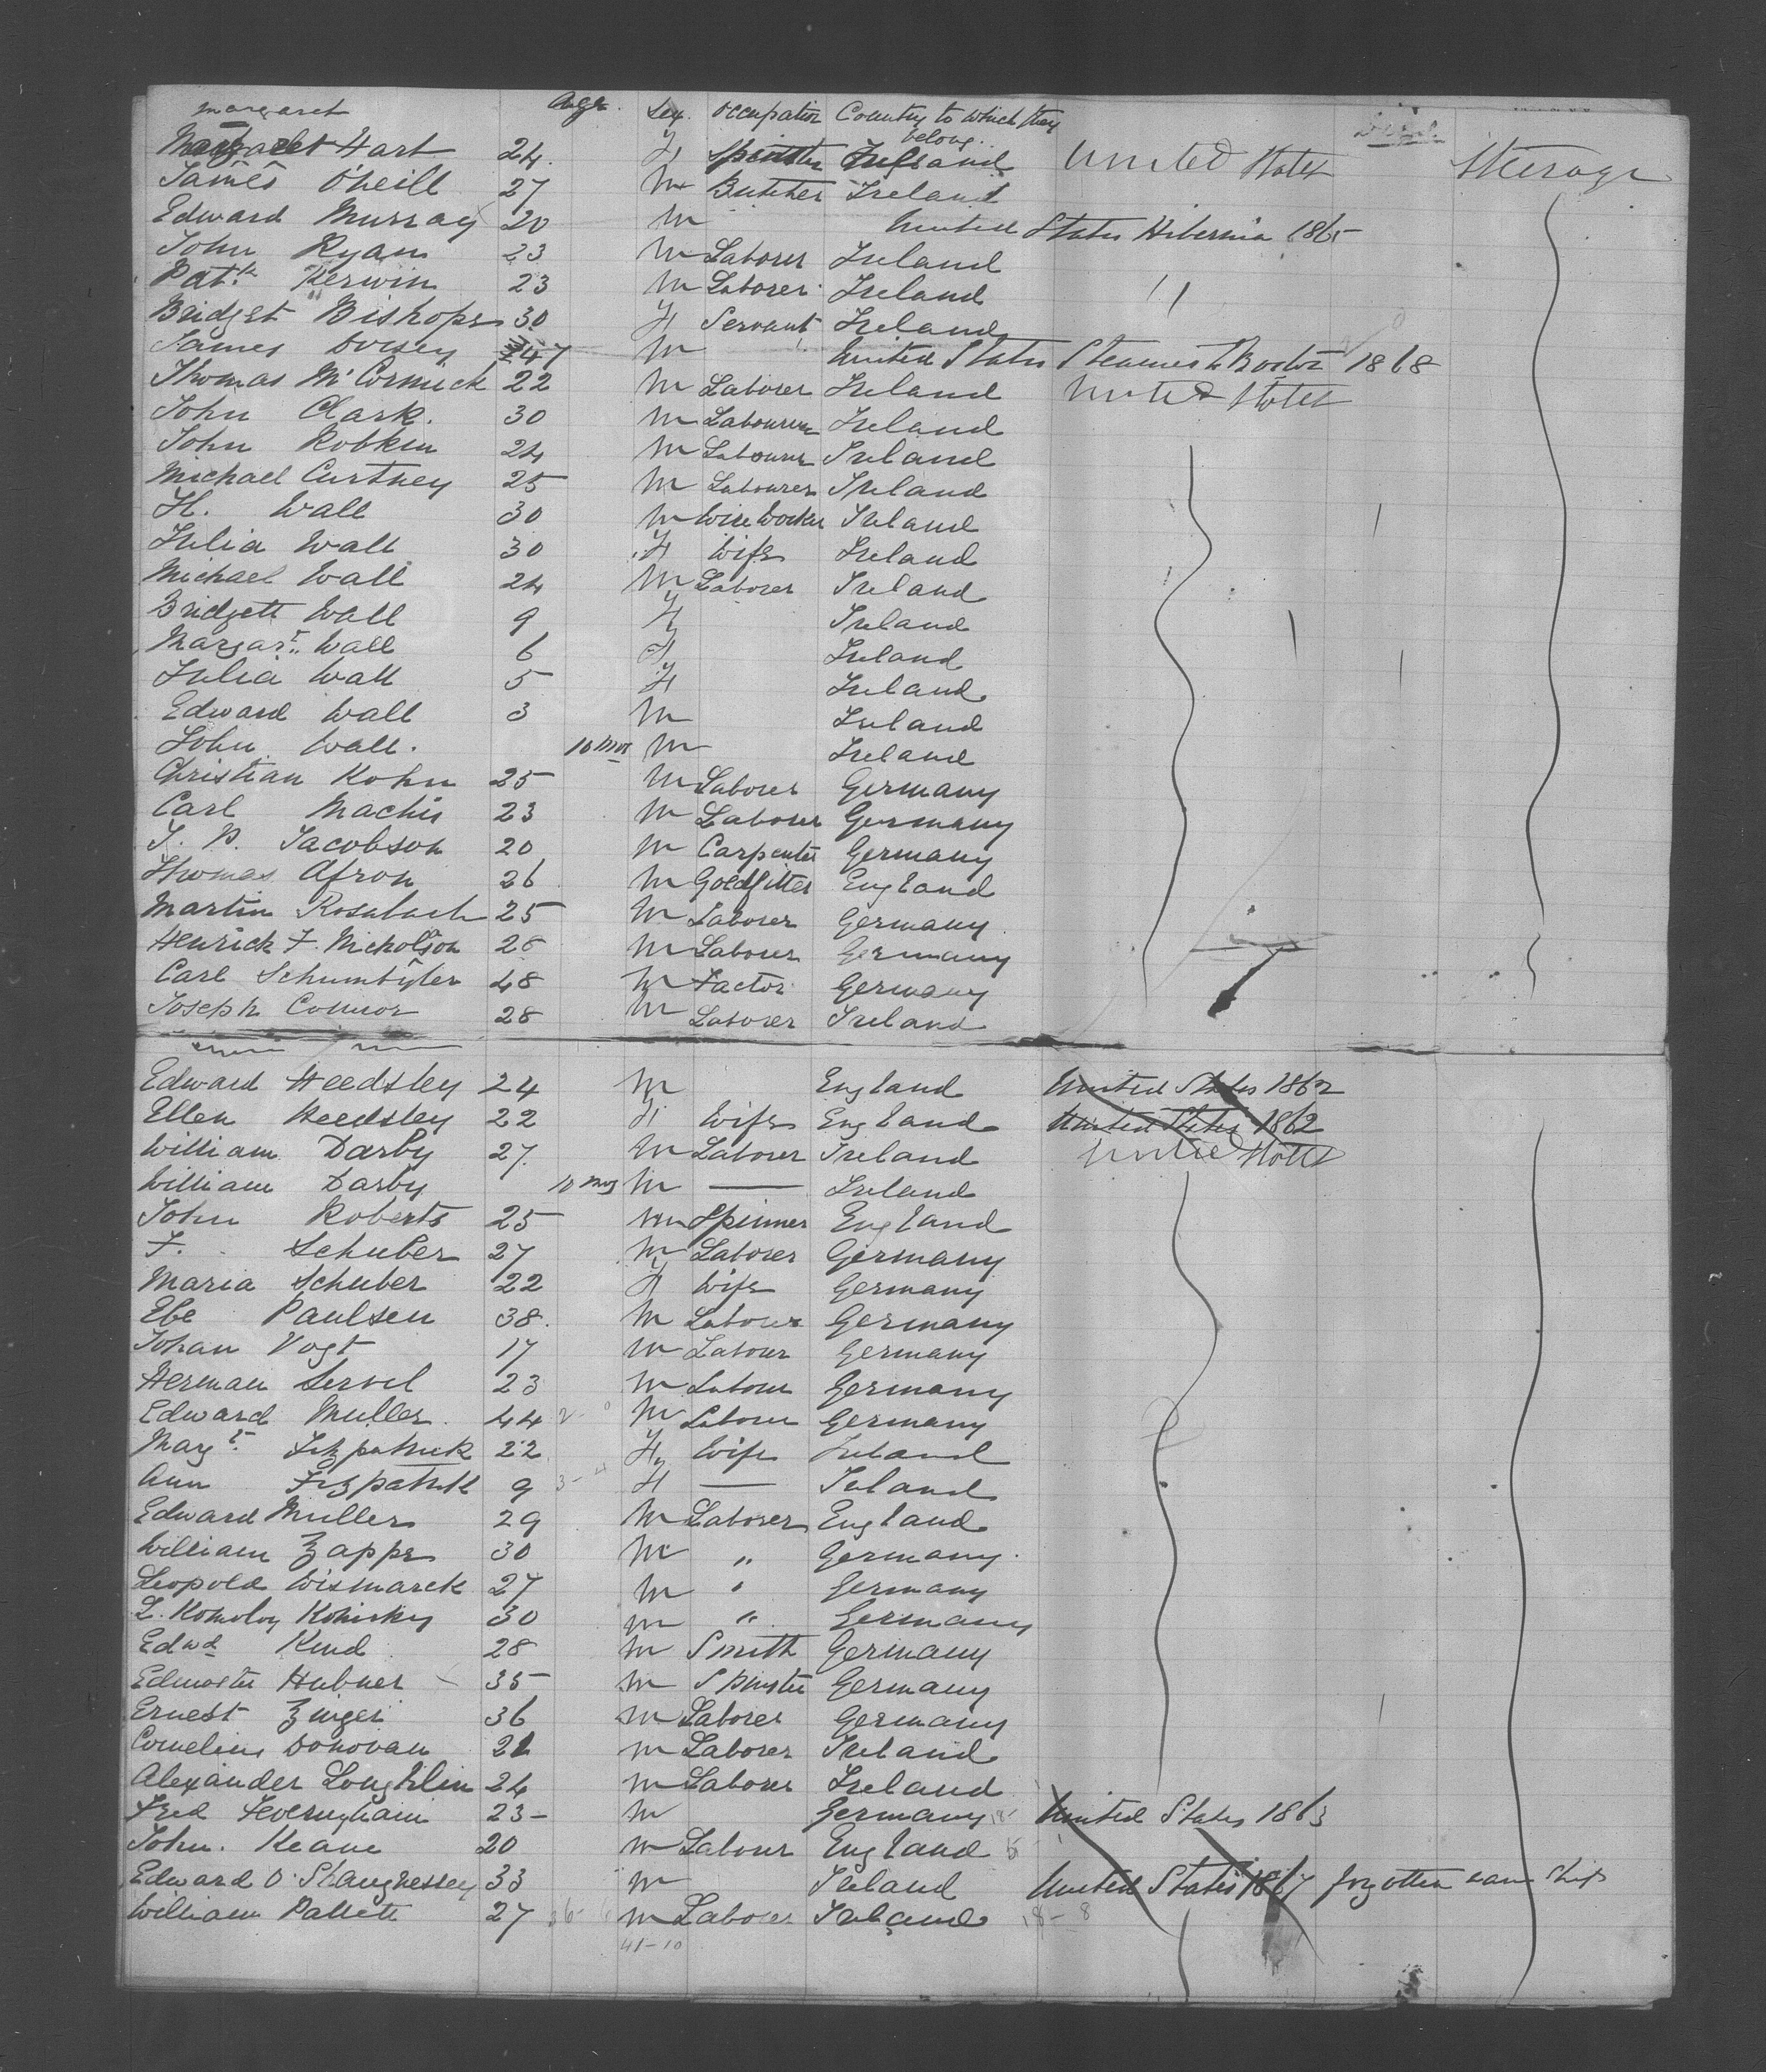 Margaret Age. Sex. Occupation Country to which they belong
Margaret Hart 24. F Spinster Ireland United States Steerage
James O'Neill 27 M Butcher Ireland
Edward Murray 20 M United States Hibernia 1865
John Ryan 23 M Laborer Ireland
Patk Kerwin 23 M Laborer Ireland "
Bridget Bishops 30 F Servant Ireland
James Dorsey 47 M United States Steamer Boston 1868
Thomas McCormick 22 M Laborer Ireland United States
John Clark. 30 M Labourer Ireland
John Robkin 24 M Labourer Ireland
Michael Curtney 25 M Labourer Ireland
H. Wall 30 M Wire Worker Ireland
Julia Wall 30 F Wife Ireland
Michael Wall 24 M Laborer Ireland
Bridgett Wall 9 F Ireland
Margart Wall 6 F Ireland
Julia Wall 5 F Ireland
Edward Wall 3 M Ireland
John Wall. 10 mos M Ireland
Christian Kohn 25 M Laborer Germany
Carl Machis 23 M Laborer Germany
J. P. Jacobson 20 M Carpenter Germany
Thomas Afron 26 M Goldfitter England
Martin Rosabach 25 M Laborer Germany
Henrick F. Nicholson 26 M Laborer Germany
Carl 48 M Factor Germany
Joseph Connor 28 M Laborer Ireland
Edward Heedsley 24 M England United States 1862
Ellen Heedsley 22 F Wife England United States 1862
William Darby 27. M Laborer Ireland United States
William Darby 10 mos M — Ireland
John Roberts 25 M Spinner England
F. Schuber 27 M Laborer Germany
Maria Schuber 22 F Wife Germany
Ebe Paulsen 38. M Labour Germany
Johan Vogt 17 M Labour Germany
Herman Servel 23 M Labour Germany
Edward Muller. 44 M Labour Germany
Margt. Fitzpatrick 22 F Wife Ireland
Ann Fizpatrick 9 F — Ireland
Edward Muller 29 M Laborer England
William Zapps 30 M " Germany
Leopold Wismarck 27 M " Germany
L. Komoloy Konisky 30 M " Germany
Edwd Kind 28 M Smith Germany
Hubner 35 M Spinster Germany
Ernest Zinger 36 M Laborer Germany
Cornelius Donovan 21 M Laborer Ireland
Alexander Loughlin 24 M Laborer Ireland
Fred Hoeringham 23 M Germany United States 1863
John. Keane 20 M Labour England
Edward O'Shaughessey 33 M Ireland United States 1867 forgotten name ship
William Pallett 27 M Laborer Ireland 18-8
41-10